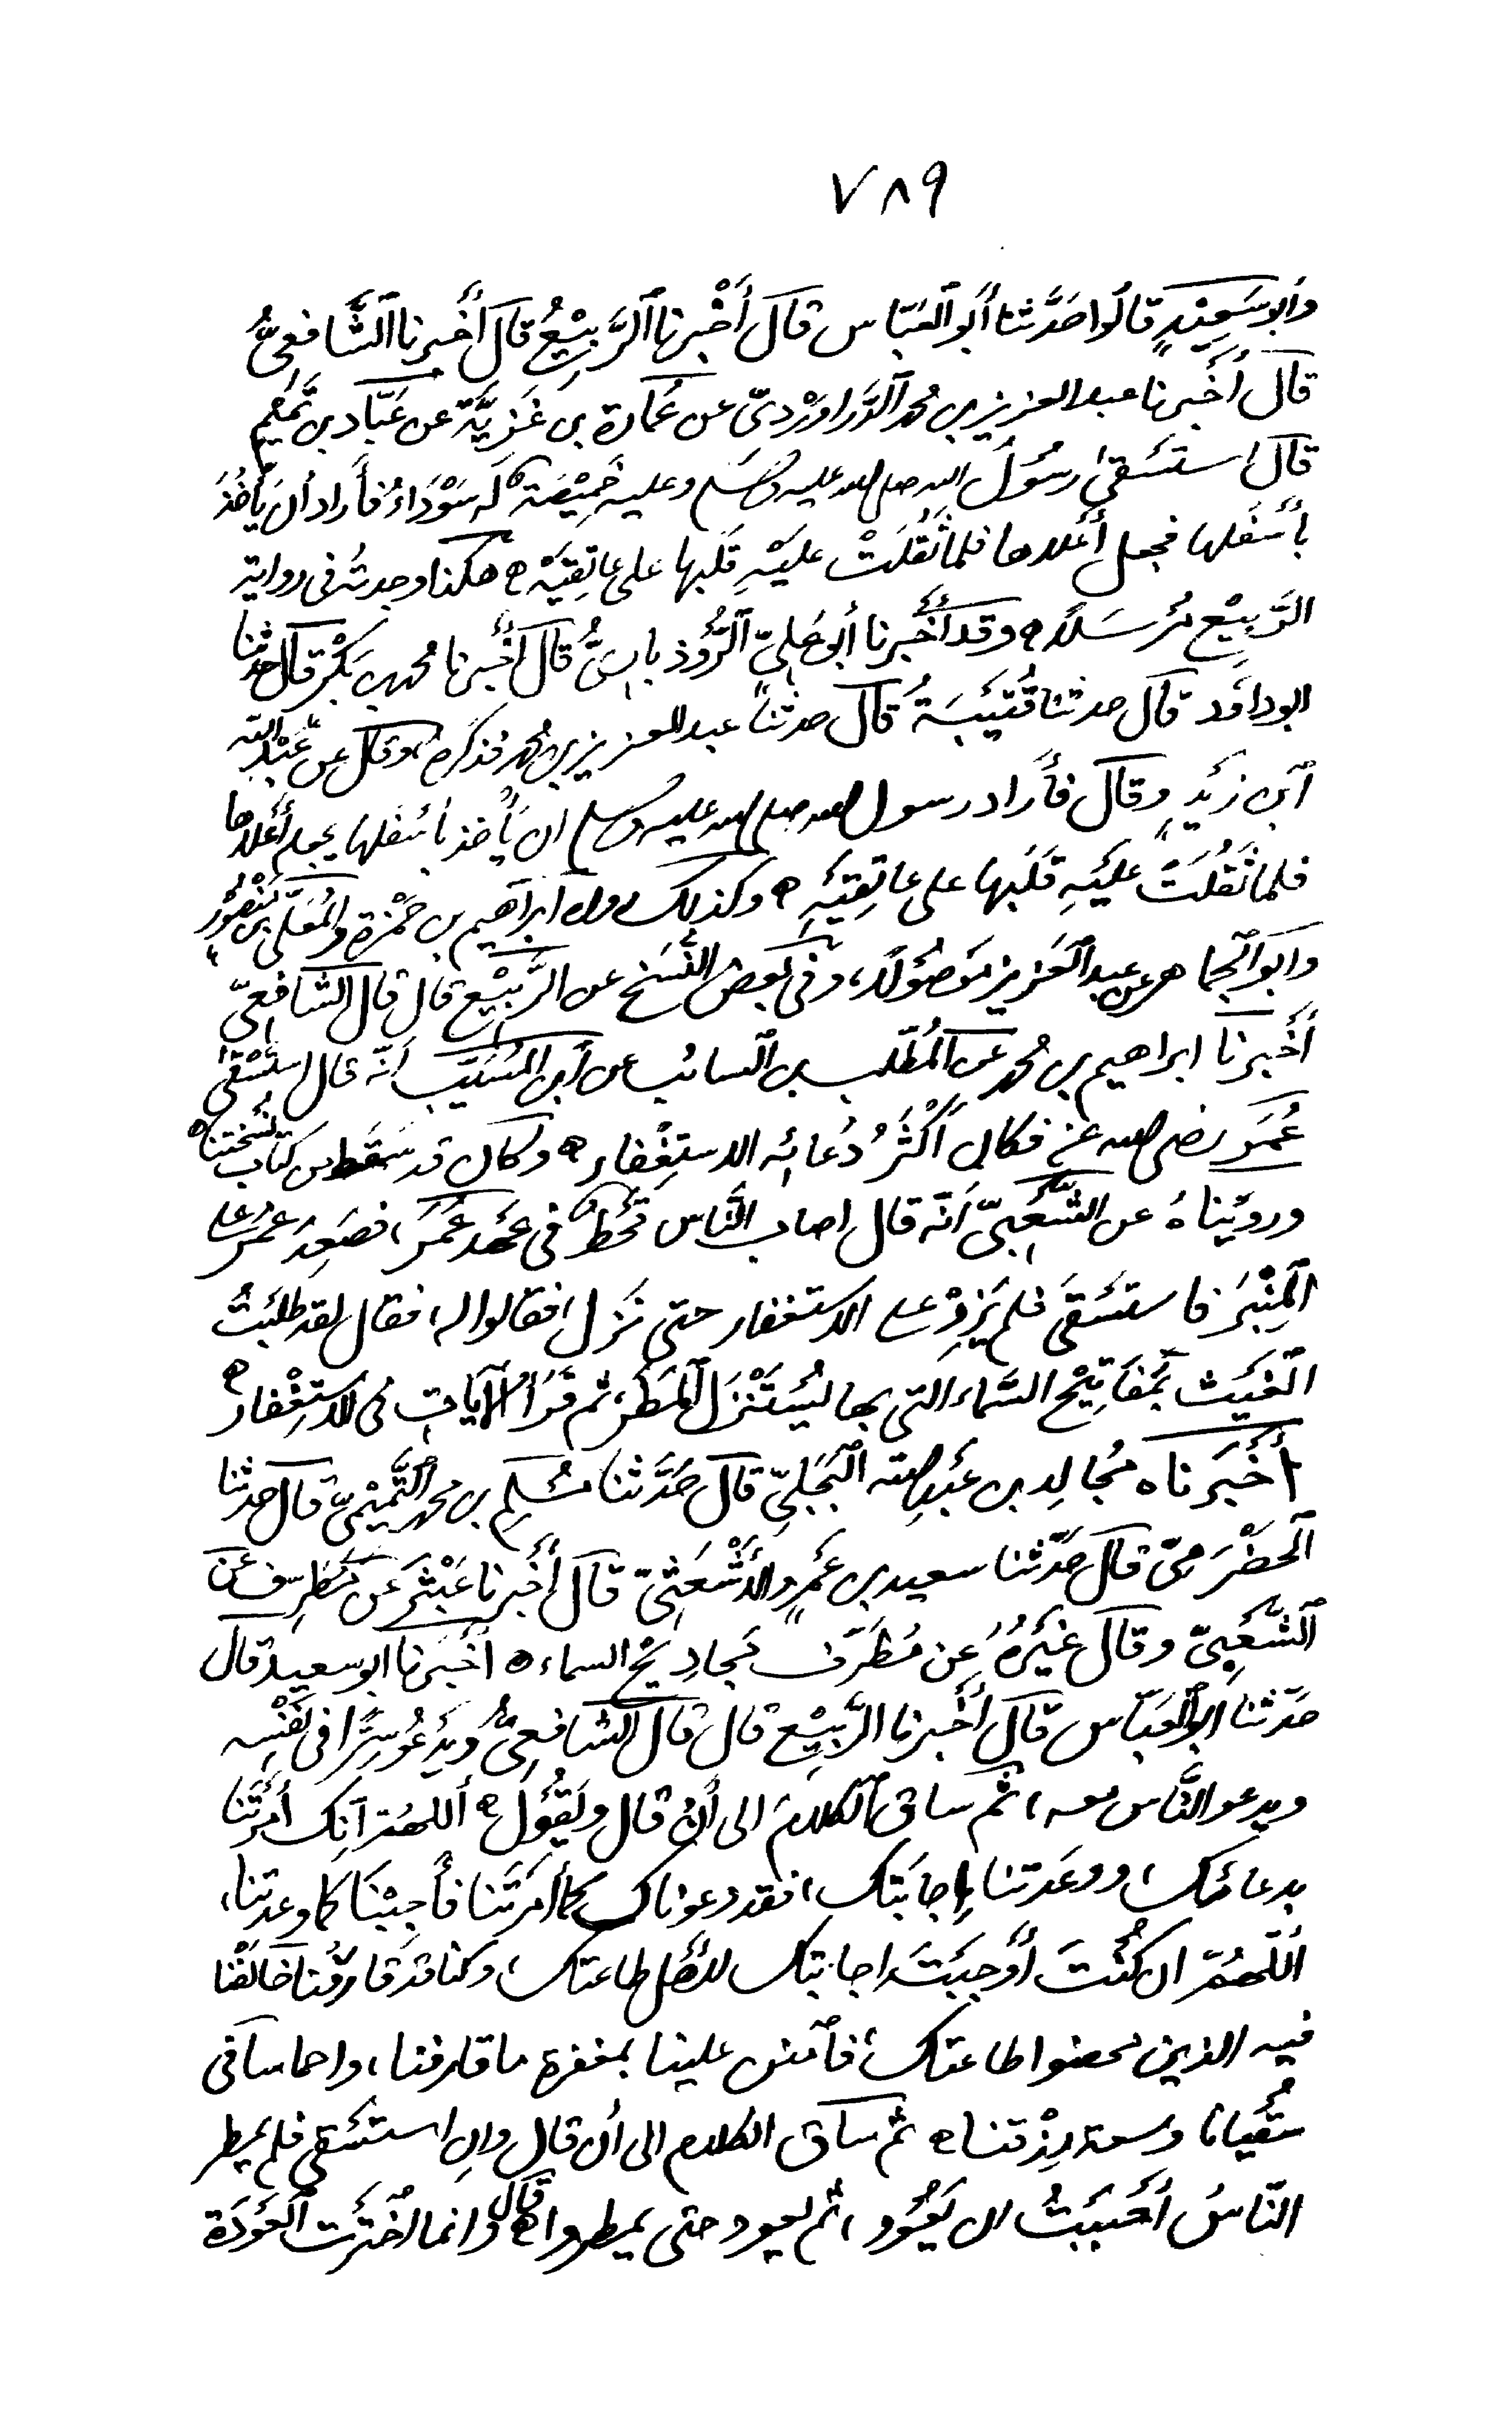 ٧٨٩
وَأَبو سَعِيْدٍ قالُوا حَدَّثنا أبُو العَبّاس قالَ أَخْبرنا الرَّبِيْعُ قالَ أَخْبرنا الشَّافِعِىُّ
قالَ أَخْبرنا عبد العزيز بن محمد الدَّرَاوَرْدِىّ عن عُمَارة بن غَزِيَّة عن عَبّاد بن تَمِيْمٍ
قال استَسْقىٰ رسُوْلُ الله صلى الله عليه وسلم وعليه خَمِيْصَة لَه سَوْدَاءُ فأَراد أن يَأْخُذَ
بأَسْفَلها فجعل أَعْلاها فلما ثَقُلَتْ عَلَيْهِ قَلَبها على عاتِقيْه ه هكذا وجدته فى رواية
الرَّبِيْع مُرسَلًا ه وقد أَخْبرنا أبو عَلِىّ الرُّوْذبارِىُّ قال أَخْبرنا محمد بن بَكْر قال حدثنا
ابو داؤد قال حدثنا قُتَيْبَةُ قال حدثنا عبد العزيز بن محمد فذكره، وقال عن عَبْد الله
ابن زَيْدٍ وقال فأَراد رسول الله صلى الله عليه وسلم ان يَأخذ بأسْفَلها يجعله أَعْلاها
فلما ثَقُلَتْ عَلَيْهِ قَلَبها على عاتِقيْهِ ه وكذلك رواه ابراهيم بن حَمْزة والمُعَلَّى بن مَنْصُوْرٍ
وابَو الجماهر عن عبد العَزيز مَوصُوْلًا، وفى بعض النُّسَخ عن الرَّبِيْع قال قال الشافِعِىّ
أَخْبرنا ابراهيم بن محمد عَن المُطَّلب بن السائب عن ابن المُسَيَّب أنّه قال استَسْقىٰ
عُمَرُ رضى الله عنه فكان أكْثَرُ دُعائِه الاستِغْفار ه وكان قد سَقَط من كتاب نُسْختنا ه
وروَيْناهُ عن الشَّعْبِىّ أنّه قال اصاب النَّاس قَحْطٌ فى عهْد عُمَرَ، فصَعِدَ عُمَرُ على
المِنْبَرَ فاستَسْقَى فلم يَزِدْ على الاستغفار حتى نَزَل، فقالوا له، فقال لقد طلبتُ
الغَيْث بمَفَاتِيْح السَّماء التى بها يُسْتَنْزَل المَطَر، ثم قَرَأ الآياتِ فى الاستِغْفار ه
أَخْبَرَناه مُجالد بن عَبْد الله البَجَلِىّ قال حَدَّثنا مُسْلم بن محمد التَّمِيْمِىّ قال حدثنا
الحَضْرَمِىّ قال حَدّثنا سعيد بن عَمْرٍو الأشْعَثِىّ قال أخْبرنا عَبْثَر عن مُطَرِّف عن
الشَّعْبِىّ وقال غَيْرُهُ عن مُطَرّف بمَجادِيْح السماء ه أَخْبَرنا ابو سعيد قال
حَدّثنا ابو العَبّاس قال أخْبرنا الرَّبِيْع قال قال الشافِعِىُّ وَيَدْعُوْ سِرًّا فى نَفْسِه
ويدعو النَّاس معه، ثم ساق الكلامَ الى أنْ قال ويَقُوْل ه أللهُمّ اَنّك أَمَرْتَنا
بدعائك، ووعَدتنا إجابَتك، فقد دعوناك كما أمَرْتَنا فأَجِبْنَا كما وعدتنا،
أللّٰهُمّ ان كُنْتَ أَوْجَبْتَ اجابتك لأهل طاعتك، وكنا قد قارَفْنا خالَفْنا
فيه الذين محضوا طاعتك، فامْنن علينا بمغفرة ما قارفنا، واجابتنا فى
سُقْيانا وسعة رِزْقنا ه ثم ساق الكلام الى أن قال وإن استَسْقى فلم يمطر
النّاسُ أَحْبَبْتُ ان يَعُوْد، ثم يعود حتى يمطروا ه قال وانما اخْتَرْت العَوْدَة